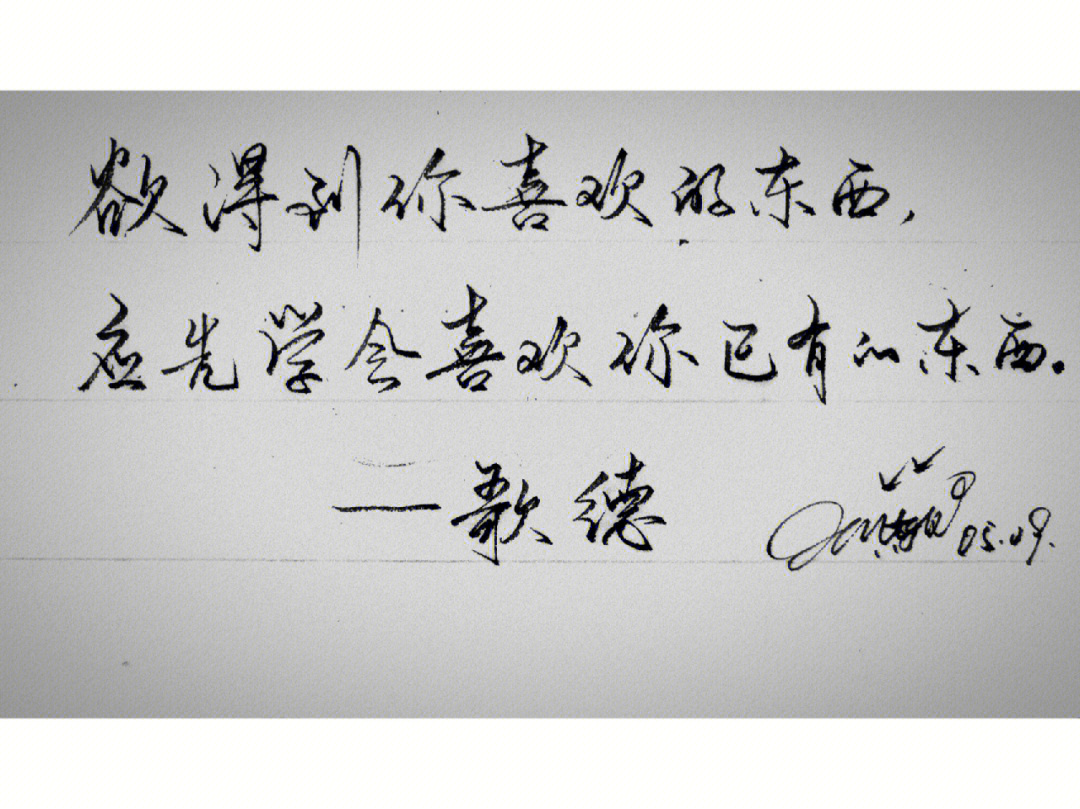 欲得到你喜欢的东西,
应先学会喜欢你已有的东西。
——歌德
05.09.